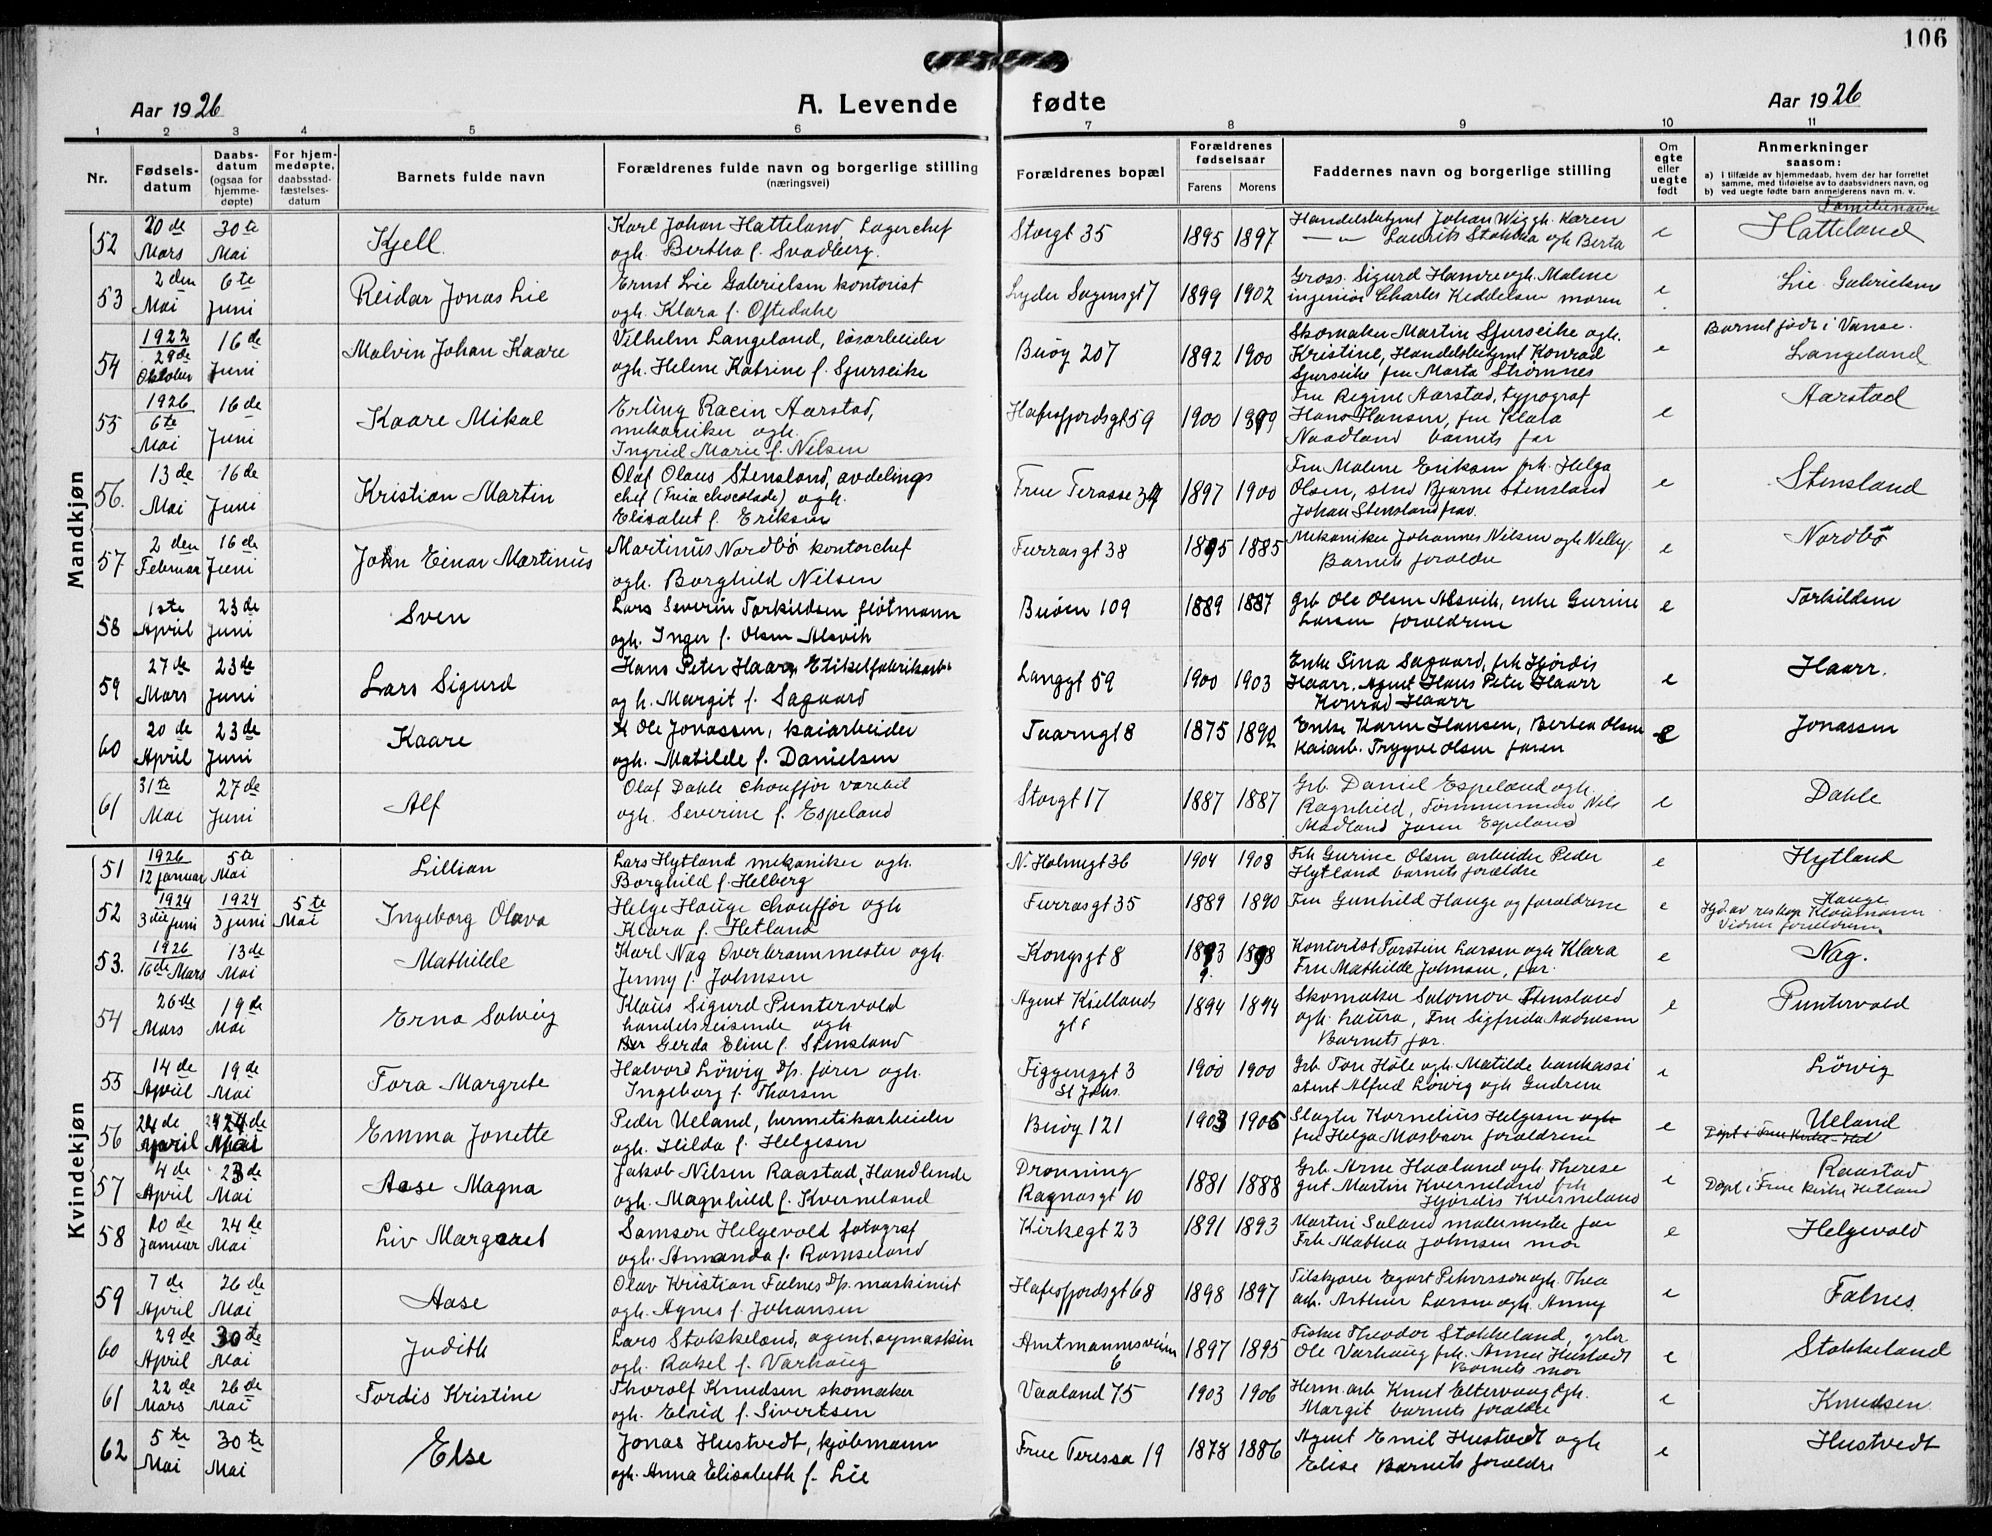 106
Aar 1926
A. Levende fødte
Aar 1926
1 2 3 4 5 6 7 8 9 10 11
Nr.
Fødsels-
datum
Daabs-
datum
(ogsaa for
hjemme-
døpte)
For hjem-
medøpte,
daabsstad-
fæstelses-
datum
Barnets fulde navn
Forældrenes fulde navn og borgerlige stilling
(næringsvei)
Forældrenes bopæl
Forældrenes
fødselsaar
Farens Morens
Faddernes navn og borgerlige stilling
Om
egte
eller
uegte
født
Anmerkninger
saasom:
a) I tilfælde av hjemmedaab, hvem der har forrettet
samme, med tilføielse av to daabsvidners navn, og
b) ved uegte fødte barn anmelderens navn m. v.
Familienavn
Mandkjøn
52 20de Mars 30te Mai Kjell.
Karl Johan Hatteland Lagerchef
ogh. Bertha f. Svadberg.
Storgt 35 1895 1897
Handelsbetymt Johan Wiggh. Karen
— " — Laurits Stokka ogh Berta
e Hatteland
53 2den Mai 6te Juni Reidar Jonas Lie
Ernst Lie Gabrielsen kontorist
ogh. Klara f. Oftedahl
Lyder Sagensgt 7 1899 1902
Gross. Sigurd Hamre ogh. Malene
ingeniør Charles Keddelsen moren
e Lie Gabrielsen
54 1922 28de Oktober 16de Juni Malvin Johan Kaare
Vilhelm Langeland, løsarbeider
ogh. Helene Katrine f. Sjurseike
Buøy 207 1892 1900
Skomaker Martin Sjurseike ogh.
Kristine, Handelsbetymt Konrad
Sjurseike fru Marta Strømnes
e Barnet født i Vanse.
Langeland
55 1926 6te Mai 16de Juni Kaare Mikal
Erling Racin Aarstad,
mekaniker ogh.
Ingrid Marie f. Nilsen
Hafrsfjordsgt 59 1900 1899
Fru Regine Aarstad, typograf
Hans Hansen, fru Klara
Naadland barnets far
e Aarstad
56. 13de Mai 16de Juni Kristian Martin
Olaf Olaus Stensland, avdelings
chef (Freia chocolade) ogh.
Elisabet f. Eriksen
Frue Terasse 34 1897 1900
Fru Malene Eriksen frk. Helga
Olsen, stud Bjarne Stensland
Johan Stensland
e Stensland
57 2den Februar 16de Juni John Einar Martinus
Martinus Nordbö kontorchef
ogh. Borghild Nilsen
Furrasgt 38 1895 1885
Mekaniker Johannes Nilsen ogh
Barnets foraldre
e Nordbö
58 1ste April 23de Juni Sven
Lars Severin Torkildsen fløtmann
ogh. Inger f. Olsen Alsvik
Buøen 109 1889 1887
grb Ole Olsen Alsvik, enke Gurine
Larsen foraldrene
e Torkildsen
59 27de Mars 23de Juni Lars Sigurd
Hans Peter Haarr, Etikelfabrikarb.
og h. Margit f. Sagaard
Langgt 59 1900 1903
Enke Sina Sagaard, frk Hjördis
Haarr. Agent Hans Peter Haarr
Konrad Haarr
e Haarr.
60 20de April 23de Juni Kaare
Ole Jonassen, kaiarbeider
ogh. Matilde f. Danielsen
Taarngt 8 1875 1892
Enke Karen Hansen, Bertea Olsen
Kaiarb. Trygve Olsen faren
e Jonassen
61 31te Mai 27de Juni Alf
Olaf Dahle chouffør varebil
ogh. Severine f. Espeland
Storgt 17 1887 1887
Grb. Daniel Espeland ogh.
Ragnhild, Tømmermann Nils
Madland Joren Espeland
e Dahle
Kvindekjøn
51 1926 12 januar 5te Mai Lillian
Lars Hytland mekaniker ogh.
Borghild f. Helberg
N. Holmegt 36 1904 1908
Frk Gurine Olsen arbeider Peder
Hytland barnets forældre
e Hytland
52 1924 3die juni 1924 3 juni 5te Mai Ingeborg Olava
Helge Hauge chouffør ogh
Klara f. Hetland
Furrasgt 35 1889 1890
Fru Gunhild Hauge og foraldrene
e Hauge
Hjd. av reskap Kloumann
Vidner foreldrene.
53. 1926 16de Mars 13de Mai Mathilde
Karl Nag Overbrannmester ogh.
Jenny f. Johnsen
Kongsgt 8 1893 1898
Kontorist Torstein Larsen ogh Klara
Fru Mathilde Johnsen, far.
e Nag.
54 26de Mars 19de Mai Erna Solveig
Klaus Sigurd Puntervold
handelsreisende ogh
Gerda Eline f. Stensland
Agent Kiellands
gt 6 1894 1894
Skomaker Salomon Stensland
ogh. Laura, Fru Sigfrida Aadnesen
Barnets far.
e Puntervold
55 14de April 19de Mai Tora Margrete
Halvord Löwig dp. fører ogh.
Ingeborg f. Thorsen
Figgengt 3
St Johs. 1900 1900
Grb. Ton Höle ogh. Matilde bankassi
stent Alfred Löwig ogh Gudrun
e Löwig
56 24de April 24de Mai Emma Jonette
Peder Ueland, hermetikarbeider
ogh. Hilda f. Helgesen
Buøy 121 1903 1905
Slagter Kornelius Helgesen ogh
frk Helga Mosbavn forældrene
e Ueland
Døpt i Frue Kirke Hetl
57 4de April 23de Mai Aase Magna
Jakob Nilsen Raastad, Handlende
ogh. Magnhild f. Kverneland
Dronning
Ragnasgt 10 1881 1888
Grb. Arne Haaland ogh. Therese
gut Martin Kverneland frk
Hjördis Kverneland
e Raastad
Døpt i Frue Kirke Hetland
58 20de Januar 24de Mai Liv Margaret
Samson Helgevold fotograf
ogh. Amanda f. Ramseland
Kirkegt 23 1891 1893
Martin Soland malermester far
Frk Mathea Johnsen mor
e Helgevold
59 7de April 26de Mai Aase
Olav Kristian Falnes dp. maskinist
ogh. Agnes f. Johansen
Hafrsfjordsgt 68 1898 1897
Tilskjærer Egart Pehrsson ogh. Thea
arb. Arthur Larsen ogh. Anny
e Falnes.
60 29de April 30te Mai Judith
Lars Stokkeland, agent, symaskin
ogh. Rakel f. Varhaug
Amtmannsveien
6 1897 1895
Fisker Theodor Stokkeland, grbr
Ole Varhaug frk. Anna Hustvedt
Barnets mor
e Stokkeland
61 22de Mars 26de Mai Tordis Kristine
Thorolf Knudsen skomaker
ogh. Elrid f. Sivertsen
Vaaland 75 1903 1906
Herm. arb Knut Eltervaag ogh.
Margit barnets foraldre
e Knudsen.
62 5te Mai 30te Mai Else
Jonas Hustvedt, kjøbmann
ogh. Anna Elisabeth f. Lie
Frue Teressa 19 1878 1886
Agent Emil Hustvedt ogh
Elise Barnets foraldre
e Hustvedt